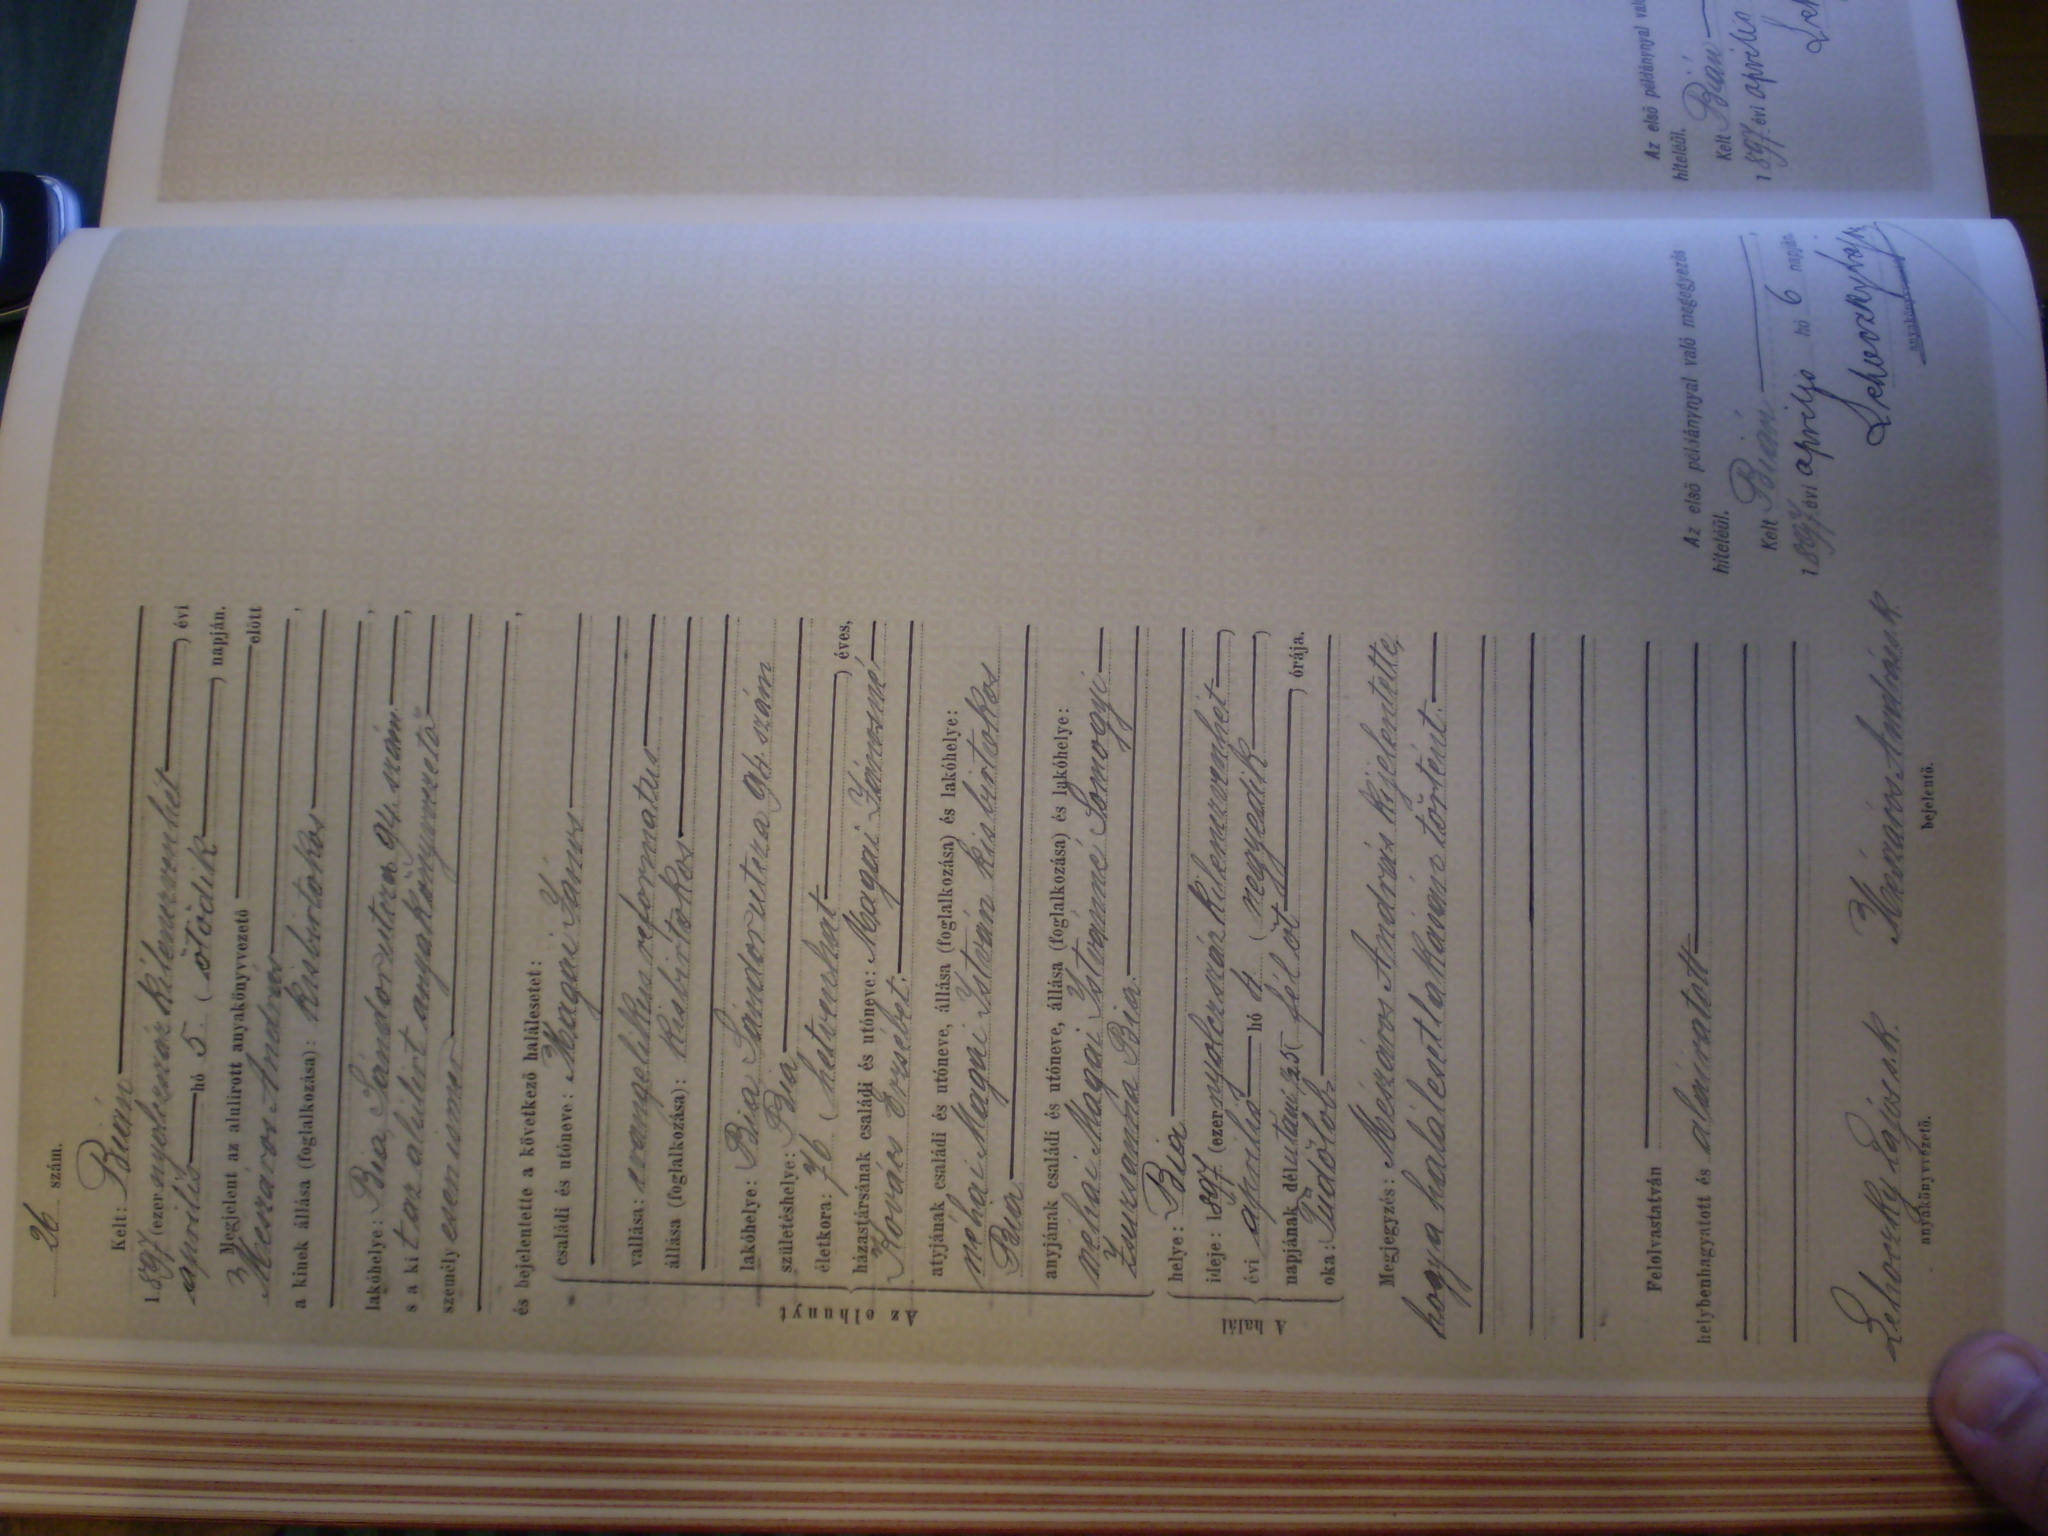 26 szám.
Kelt: Bián
1897 (ezer nyolczszáz kilenczvenhét) évi
április hó 5. (ötödik) napján.
Megjelent az alulirott anyakönyvvezető előtt
Mészáros András
a kinek állása (foglalkozása): kisbirtokos,
lakóhelye: Bia Sándor utcza 94. szám,
s a kit az alulirt anyakönyvvezető
személyesen ismer,
és bejelentette a következő halálesetet:
Az elhunyt
családi és utóneve: Magai János
vallása: evangelikus reformatus
állása (foglalkozása): kisbirtokos
lakóhelye: Bia Sándor utcza 94. szám
születéshelye: Bia
életkora: 76 (hetvenhat) éves,
házastársának családi és utóneve: Magai Jánosné
Kovács Erzsébet.
atyjának családi és utóneve, állása (foglalkozása) és lakóhelye:
néhai Magai István kisbirtokos
Bia
anyjának családi és utóneve, állása (foglalkozása) és lakóhelye:
néhai Magai Istvánné Somogyi
Zsuzsanna Bia.
A halál
helye: Bia
ideje: 1897 (ezer nyolczszáz kilenczvenhét)
évi április hó 4 (negyedik)
napjának délutáni (fél öt) órája.
oka: Tüdőlob
Megjegyzés: Mészáros András kijelentette,
hogy a haláleset lakásán történt.
Felolvastatván
helybenhagyatott és aláiratott
Lehoczky Lajos s. k. Mészáros András s. k.
anyakönyvvezető. bejelentő.
Az első példánynyal való megegyezés
hiteléül.
Kelt Bián
1897. évi április hó 6 napján.
Lehoczky Lajos
Az első példánynyal való
hiteléül.
Kelt Bián
1897. évi április